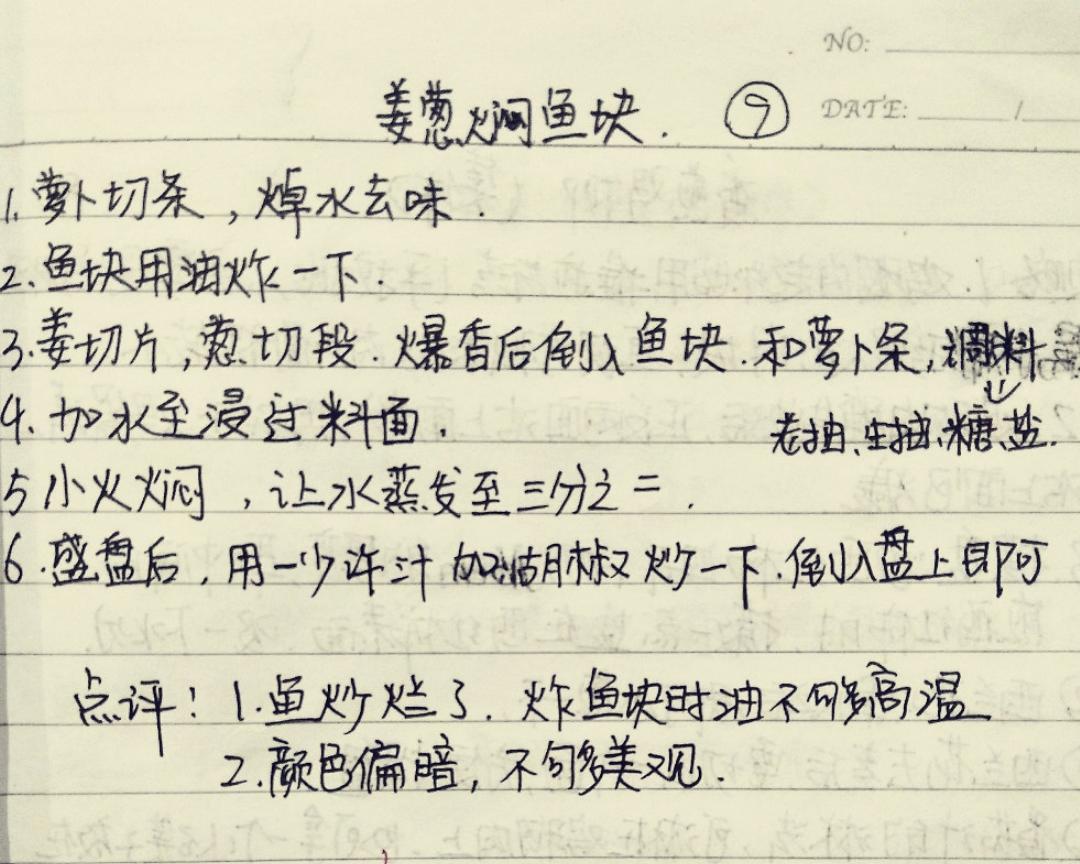 NO:
姜葱焖鱼块. ⑨ DATE: /
1. 萝卜切条，焯水去味.
2. 鱼块用油炸一下.
3. 姜切片，葱切段. 爆香后倒入鱼块. 和萝卜条，调料
4. 加水至浸过料面.
老抽、生抽、糖、盐.
5 小火焖，让水蒸发至三分之二.
6. 盛盘后，用一少许汁加胡椒炒一下. 倒入盘上即可
点评：1. 鱼炒烂了. 炸鱼块时油不够高温
2. 颜色偏暗，不够美观.